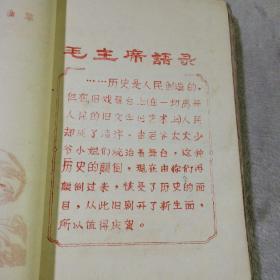 毛主席語录
……历史是人民创造的，
但在旧戏舞台上（在一切离开
人民的旧文学旧艺术上）人民
却成了渣滓，由老爷太太少
爷小姐们统治着舞台，这种
历史的颠倒，现在由你们再
颠倒过来，恢复了历史的面
目，从此旧剧开了新生面，
所以值得庆贺。